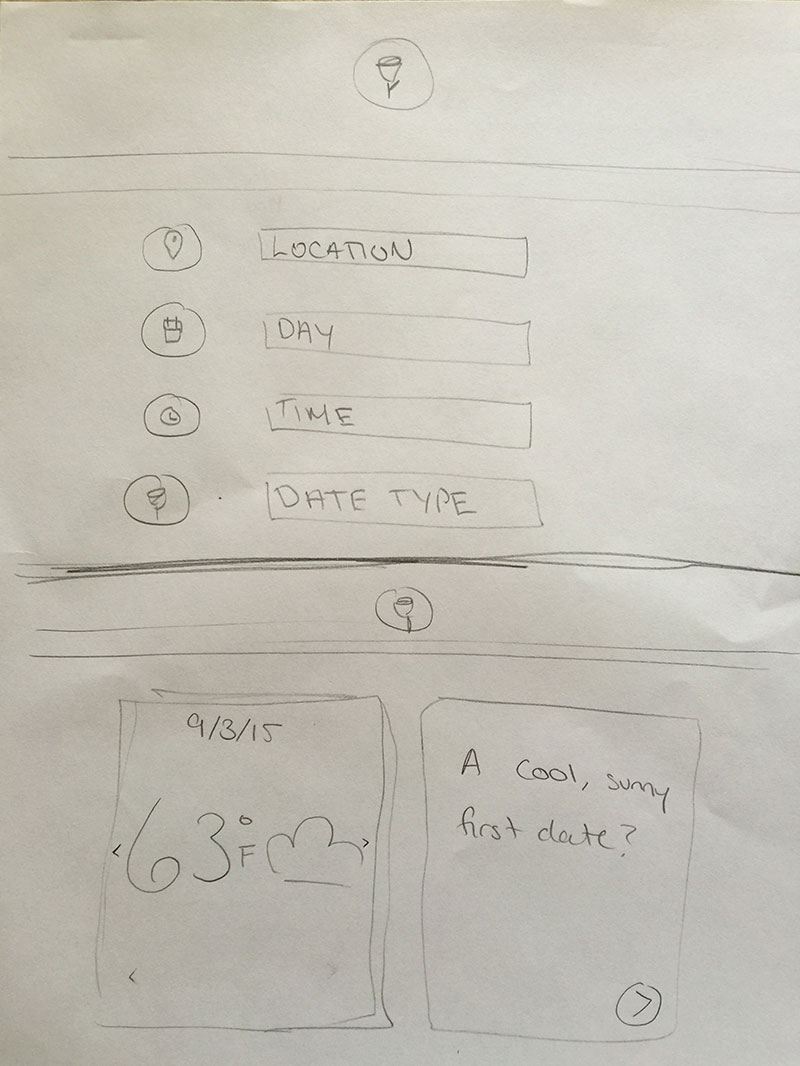 LOCATION
DAY
TIME
DATE TYPE
9/3/15
63°F
A cool, sunny
first date?